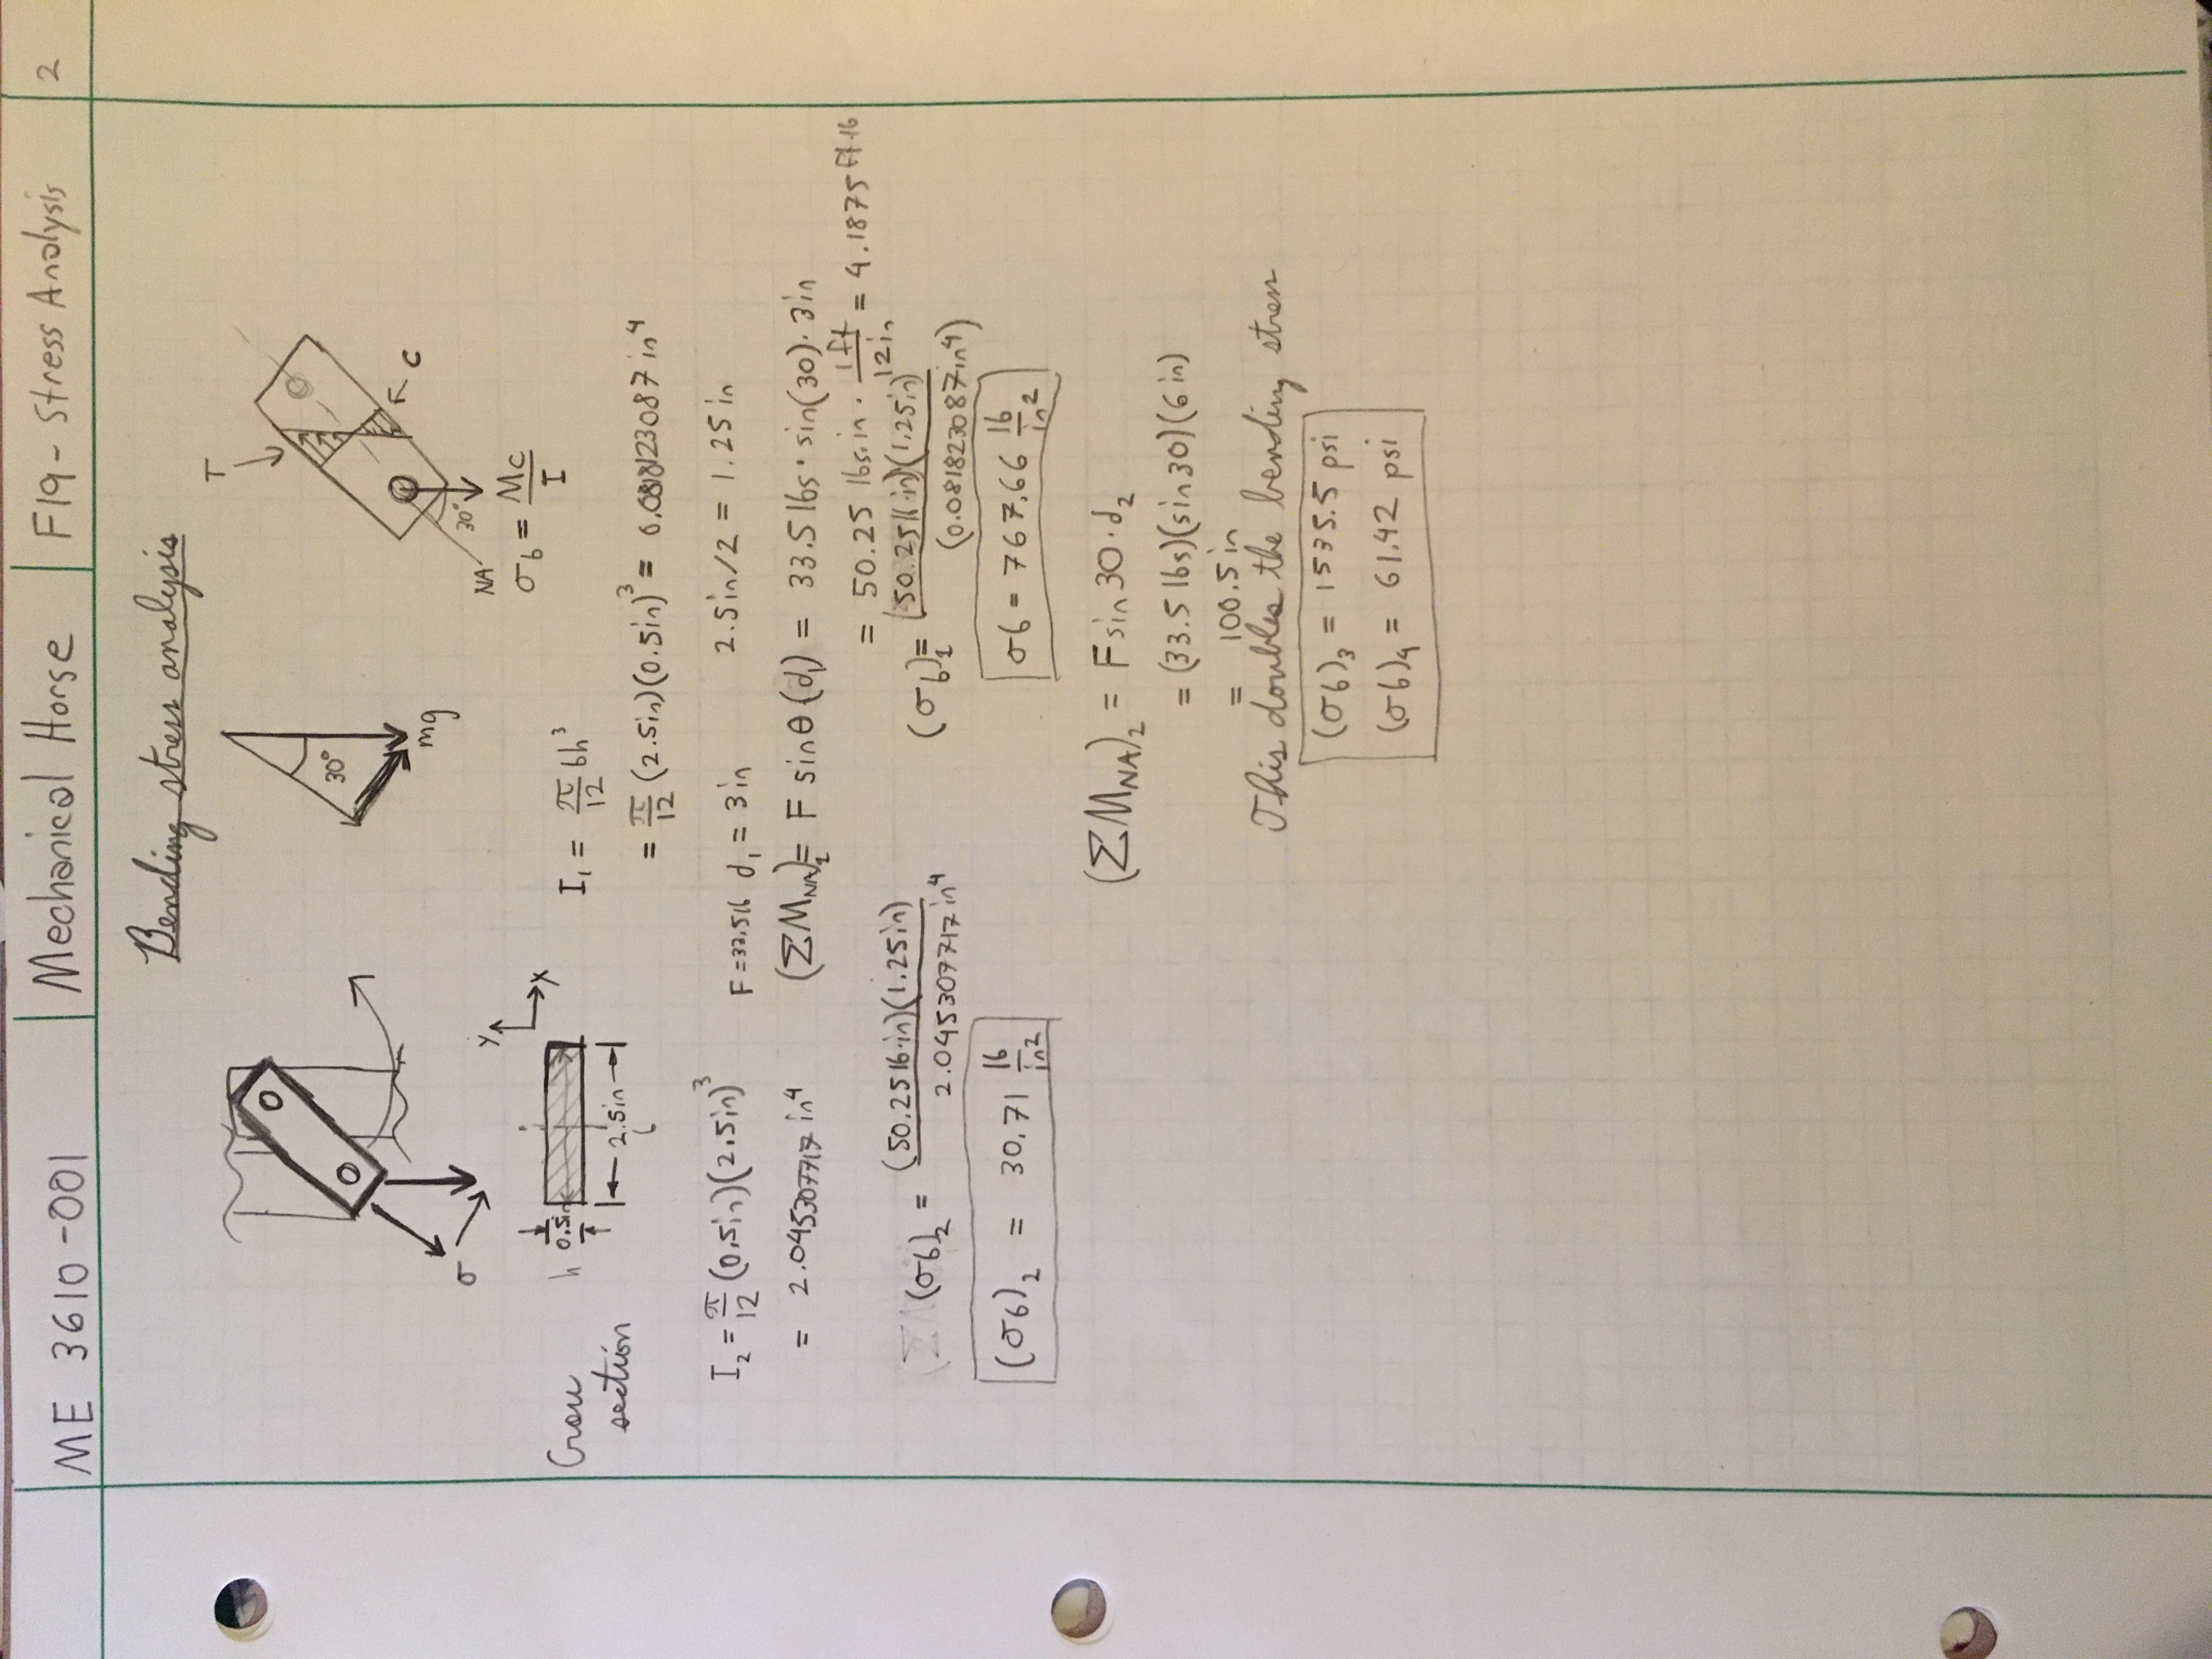 ME 3610-001 Mechanical Horse F19 - Stress Analysis 2
Bending stress analysis
T
30°
mg
C
σ
NA 30°
σb = Mc/I
Y
X
Cross section
h 0.5in
2.5in
b
I₁ = π/12 bh³
= π/12 (2.5in)(0.5in)³ = 0.0818123087 in⁴
I₂ = π/12 (0.5in)(2.5in)³
= 2.045307717 in⁴
F = 33.5lb d₁ = 3in 2.5in/2 = 1.25 in
(ΣM_NA)₁ = F sinθ (d₁) = 33.5 lbs · sin(30) · 3in
= 50.25 lbs·in · 1ft/12in = 4.1875 ft·lb
(σb)₂ = (50.25lb·in)(1.25in)/2.045307717in⁴
(σb)₁ = (50.25lb·in)(1.25in)/(0.081823087in⁴)
(σb)₂ = 30.71 lb/in²
σb = 767.66 lb/in²
(ΣM_NA)₂ = F sin 30 · d₂
= (33.5 lbs)(sin 30)(6 in)
= 100.5 in
This doubles the bending stress
(σb)₃ = 1535.5 psi
(σb)₄ = 61.42 psi